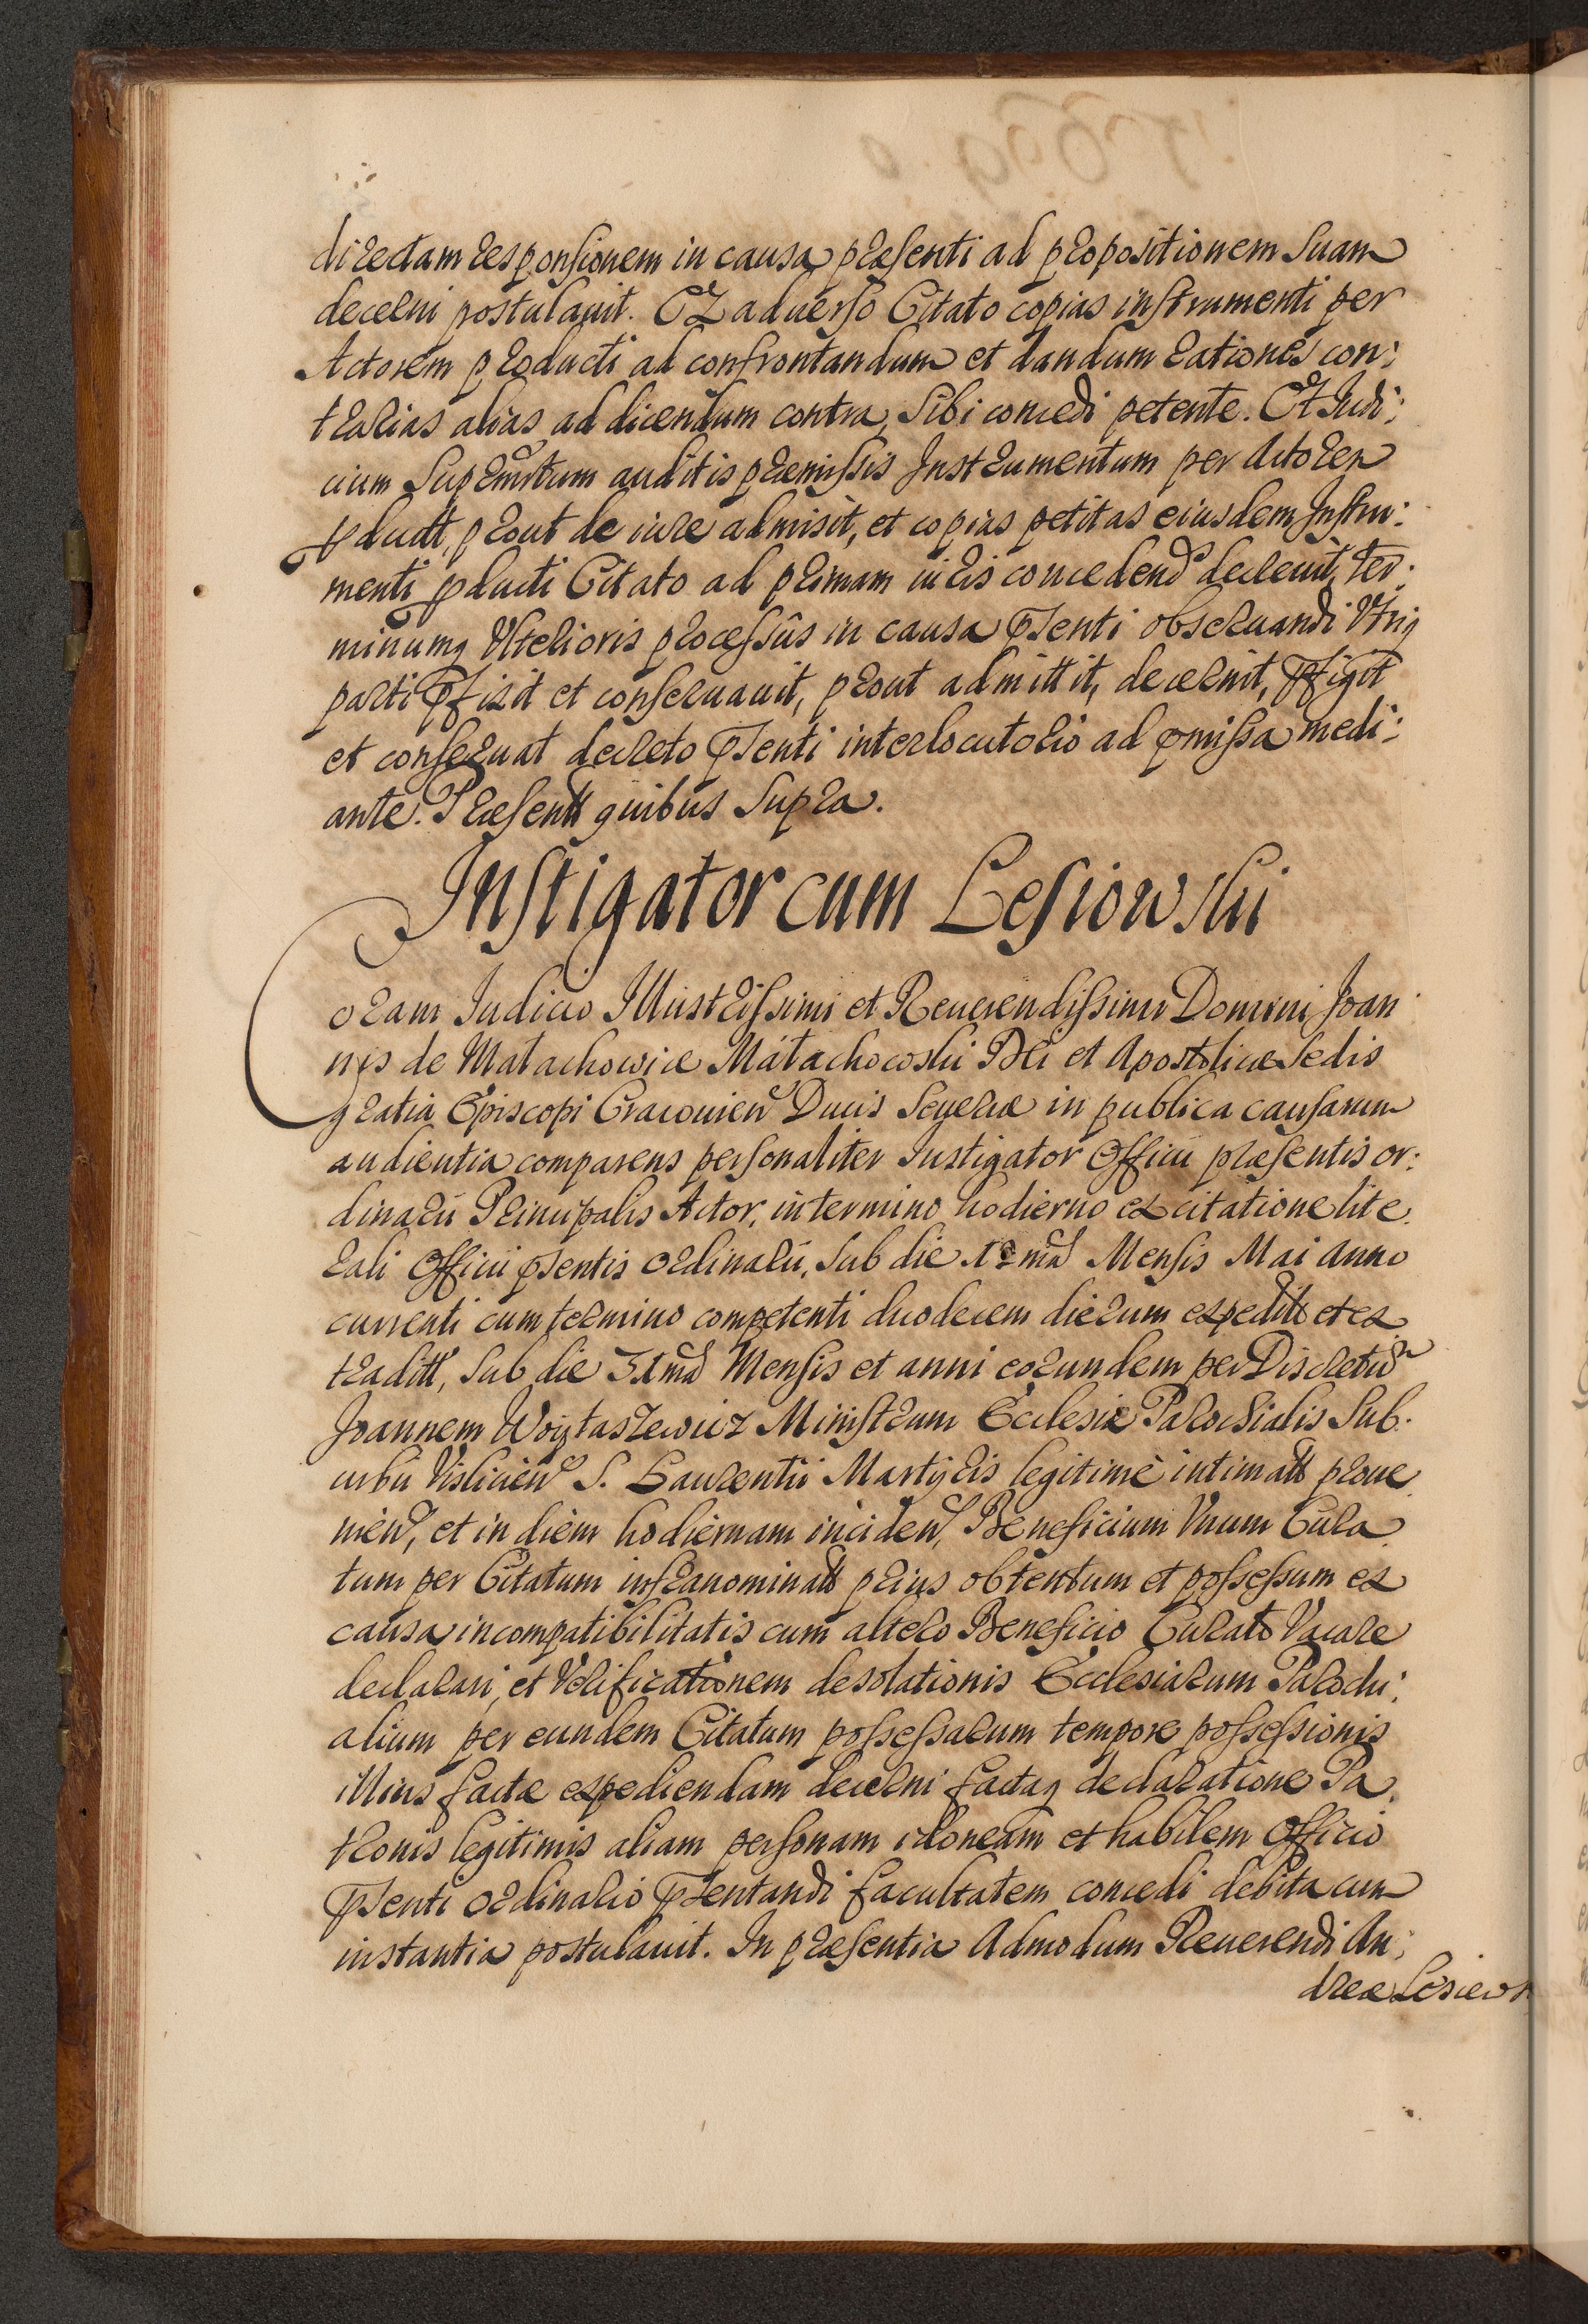 directam responsionem in causa præsenti ad propositionem suam
decerni postulauit. Ex aduerso Citato copias instrumenti per
Actorem producti ad confrontandum et dandum rationes con:
trarias alias ad dicendum contra, sibi concedi petente. Et Judi:
cium præmissis Instrumentum per Actorem
pductt, prout de iure admisit, et copias petitas eiusdem Instru:
menti pducti Citato ad primam iuris concedend decreuit, ter:
minumq Vlterioris processûs in causa psenti obseruandi Vtriq
parti pfixit et conseruauit, prout admittit, decernit, pfigit
et conseruat decreto psenti interlocutorio ad pmissa medi:
ante. Præsentt quibus supra.
Instigator cum Lesiowski
Coram Iudicio Illustrissimi et Reuerendissimi Domini Joan
nis de Małachowice Małachowski Dei et Apostolicæ Sedis
gratia Episcopi Cracouien Ducis Seueriæ in publica causarum
audientia comparens personaliter Instigator Officii præsentis or:
dinarii Principalis Actor, in termino hodierno ex citatione lite
rali Officii psentis ordinarii, sub die 12 ma Mensis Mai Anno
currenti cum termino competenti duodecem dierum expeditt et ex
traditt, sub die 31 ma Mensis et anni eorundem per Discretum
Joannem Woytaszewicz Ministrum Ecclesiæ Parochialis Sub
urbii Vislicien S. Laurentii Martyris legitimè intimatt proue
nien, et in diem hodiernam inciden, Beneficium Vnum Cura
tum per Citatum infranominatt prius obtentum et possessum ex
causa incompatibilitatis cum altero Beneficio Curato Vacare
declarari, et Verificationem desolationis Ecclesiarum Parochi:
alium per eundem Citatum possessarum tempore possessionis
illius factæ expediendam decerni factaq declaratione Pa
tronis legitimis aliam personam idoneam et habilem Officio
psenti ordinario psentandi facultatem concedi debita cum
instantia postulauit. In præsentia Admodum Reuerendi An:
dreæ Lesiews